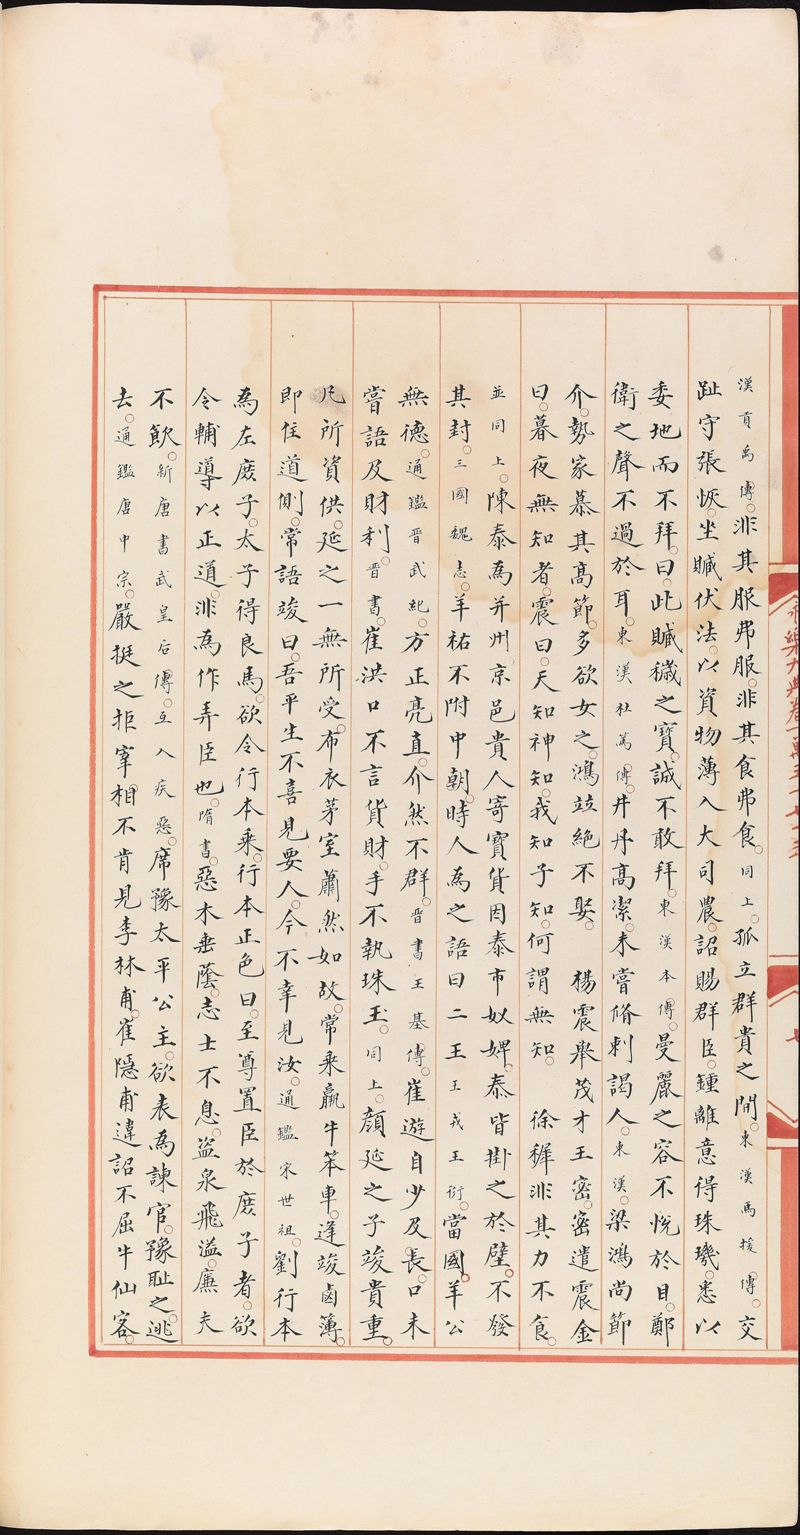 漢貢禹傳。非其服弗服。非其食弗食。同上。孤立群貴之間。東漢馬援傳。交
趾守張恢。坐贓伏法。以資物薄入大司農。詔賜群臣。鍾離意得珠璣。悉以
委地而不拜。曰。此贓穢之寶。誠不敢拜。東漢本傳。曼麗之容不悅於目。鄭
衛之聲不過於耳。東漢杜篤傳。井丹高潔。未嘗脩刺謁人。東漢。梁鴻尚節
介。勢家慕其高節。多欲女之。鴻竝絕不娶。 楊震舉茂才王密。密遣震金
曰。暮夜無知者。震曰。天知神知。我知子知。何謂無知。 徐穉非其力不食。
並同上。陳泰為并州京邑貴人寄寶貨因泰市奴婢。泰皆掛之於壁。不發
其封。三國魏志。羊祜不附中朝。時人為之語曰二王王戎王衍。當國。羊公
無德。通鑑晉武紀。方正亮直。介然不群。晉書王基傳。崔遊自少及長。口未
嘗語及財利。晉書。崔洪口不言貨財。手不執珠玉。同上。顏延之子竣貴重。
凡所資供。延之一無所受。布衣茅室蕭然如故。常乘羸牛笨車。逢竣鹵簿。
即住道側。常語竣曰。吾平生不喜見要人。今不幸見汝。通鑑宋世祖。劉行本
為左庶子。太子得良馬。欲令行本乘。行本正色曰。至尊置臣於庶子者。欲
令輔導以正道。非為作弄臣也。隋書。惡木垂蔭。志士不息。盜泉飛溢。廉夫
不飲。新唐書武皇后傳。互入疾惡。席豫太平公主。欲表為諫官。豫耻之。逃
去。通鑑唐中宗。嚴挺之拒宰相不肯見李林甫。崔隱甫違詔不屈牛仙客。
七